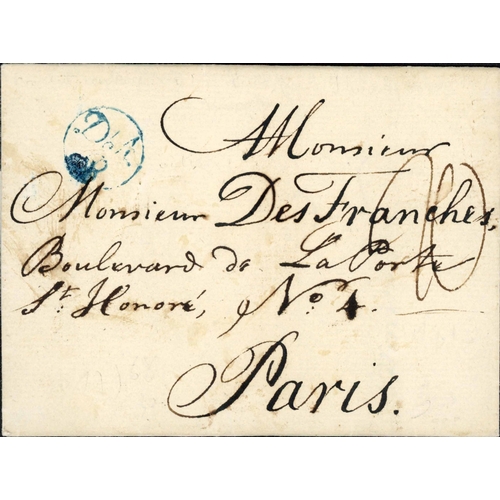 A Monsieur
Monsieur Des Franches,
Boulevard de La Porte
St. Honoré, No. 4.
Paris.